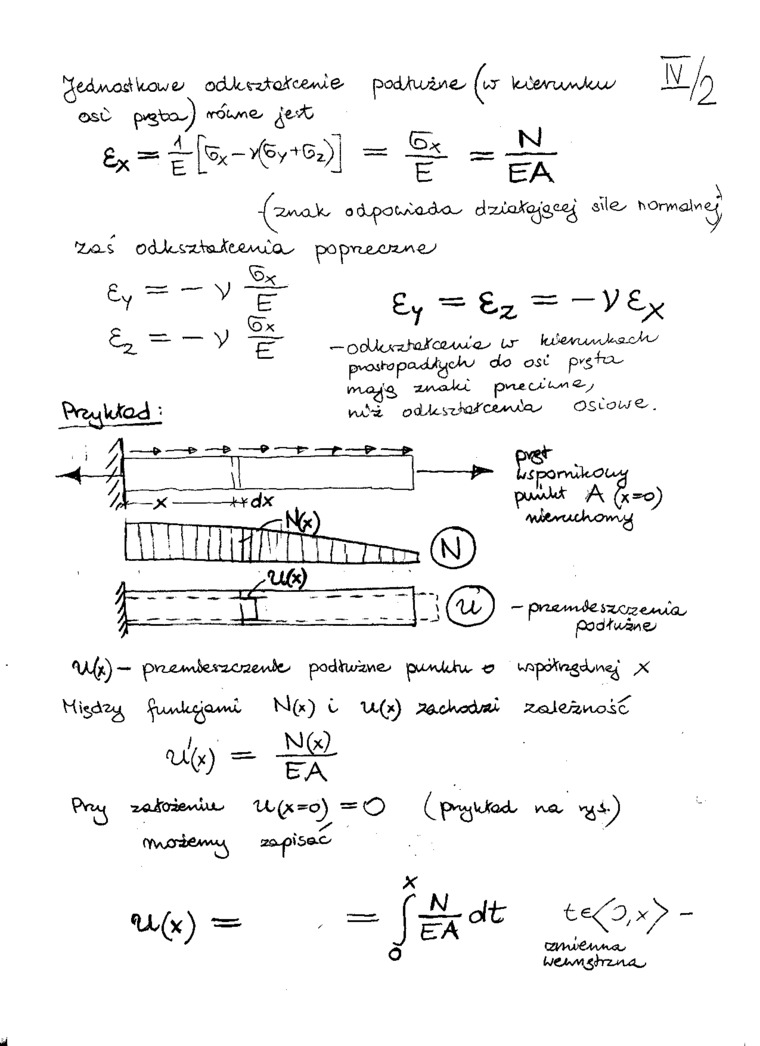 Jednostkowe odkształcenie podłużne (w kierunku IV/2
osi pręta) równe jest
εx = 1/E [σx - ν(σy + σz)] = σx/E = N/EA
- (znak odpowiada działającej sile normalnej)
zaś odkształcenia poprzeczne
εy = - ν σx/E
εz = - ν σx/E
εy = εz = - ν εx
- odkształcenia w kierunkach
prostopadłych do osi pręta
mają znaki przeciwne,
niż odkształcenia osiowe.
Przykład:
pręt
wspornikowy
punkt A (x=0)
nieruchomy
x dx
N(x)
N
u(x)
u
- przemieszczenia
podłużne
u(x) - przemieszczenie podłużne punktu o współrzędnej x
Między funkcjami N(x) i u(x) zachodzi zależność
u'(x) = N(x)/EA
Przy założeniu u(x=0) = 0 (przykład na rys.)
możemy zapisać
u(x) = = ∫₀ˣ N/EA dt t∈<0,x> -
zmienna
wewnętrzna